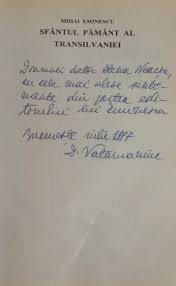 MIHAI EMINESCU
SFÂNTUL PĂMÂNT AL
TRANSILVANIEI
Doamnei doctor Elena Neacșu,
cu cele mai alese senti-
mente din partea edi-
torului lui Eminescu
București iulie 1997
D. Vatamaniuc